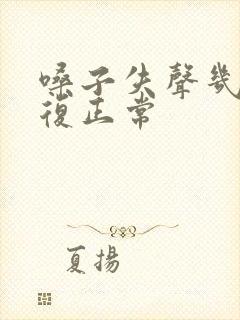 嗓子失聲幾
復正常
夏揚